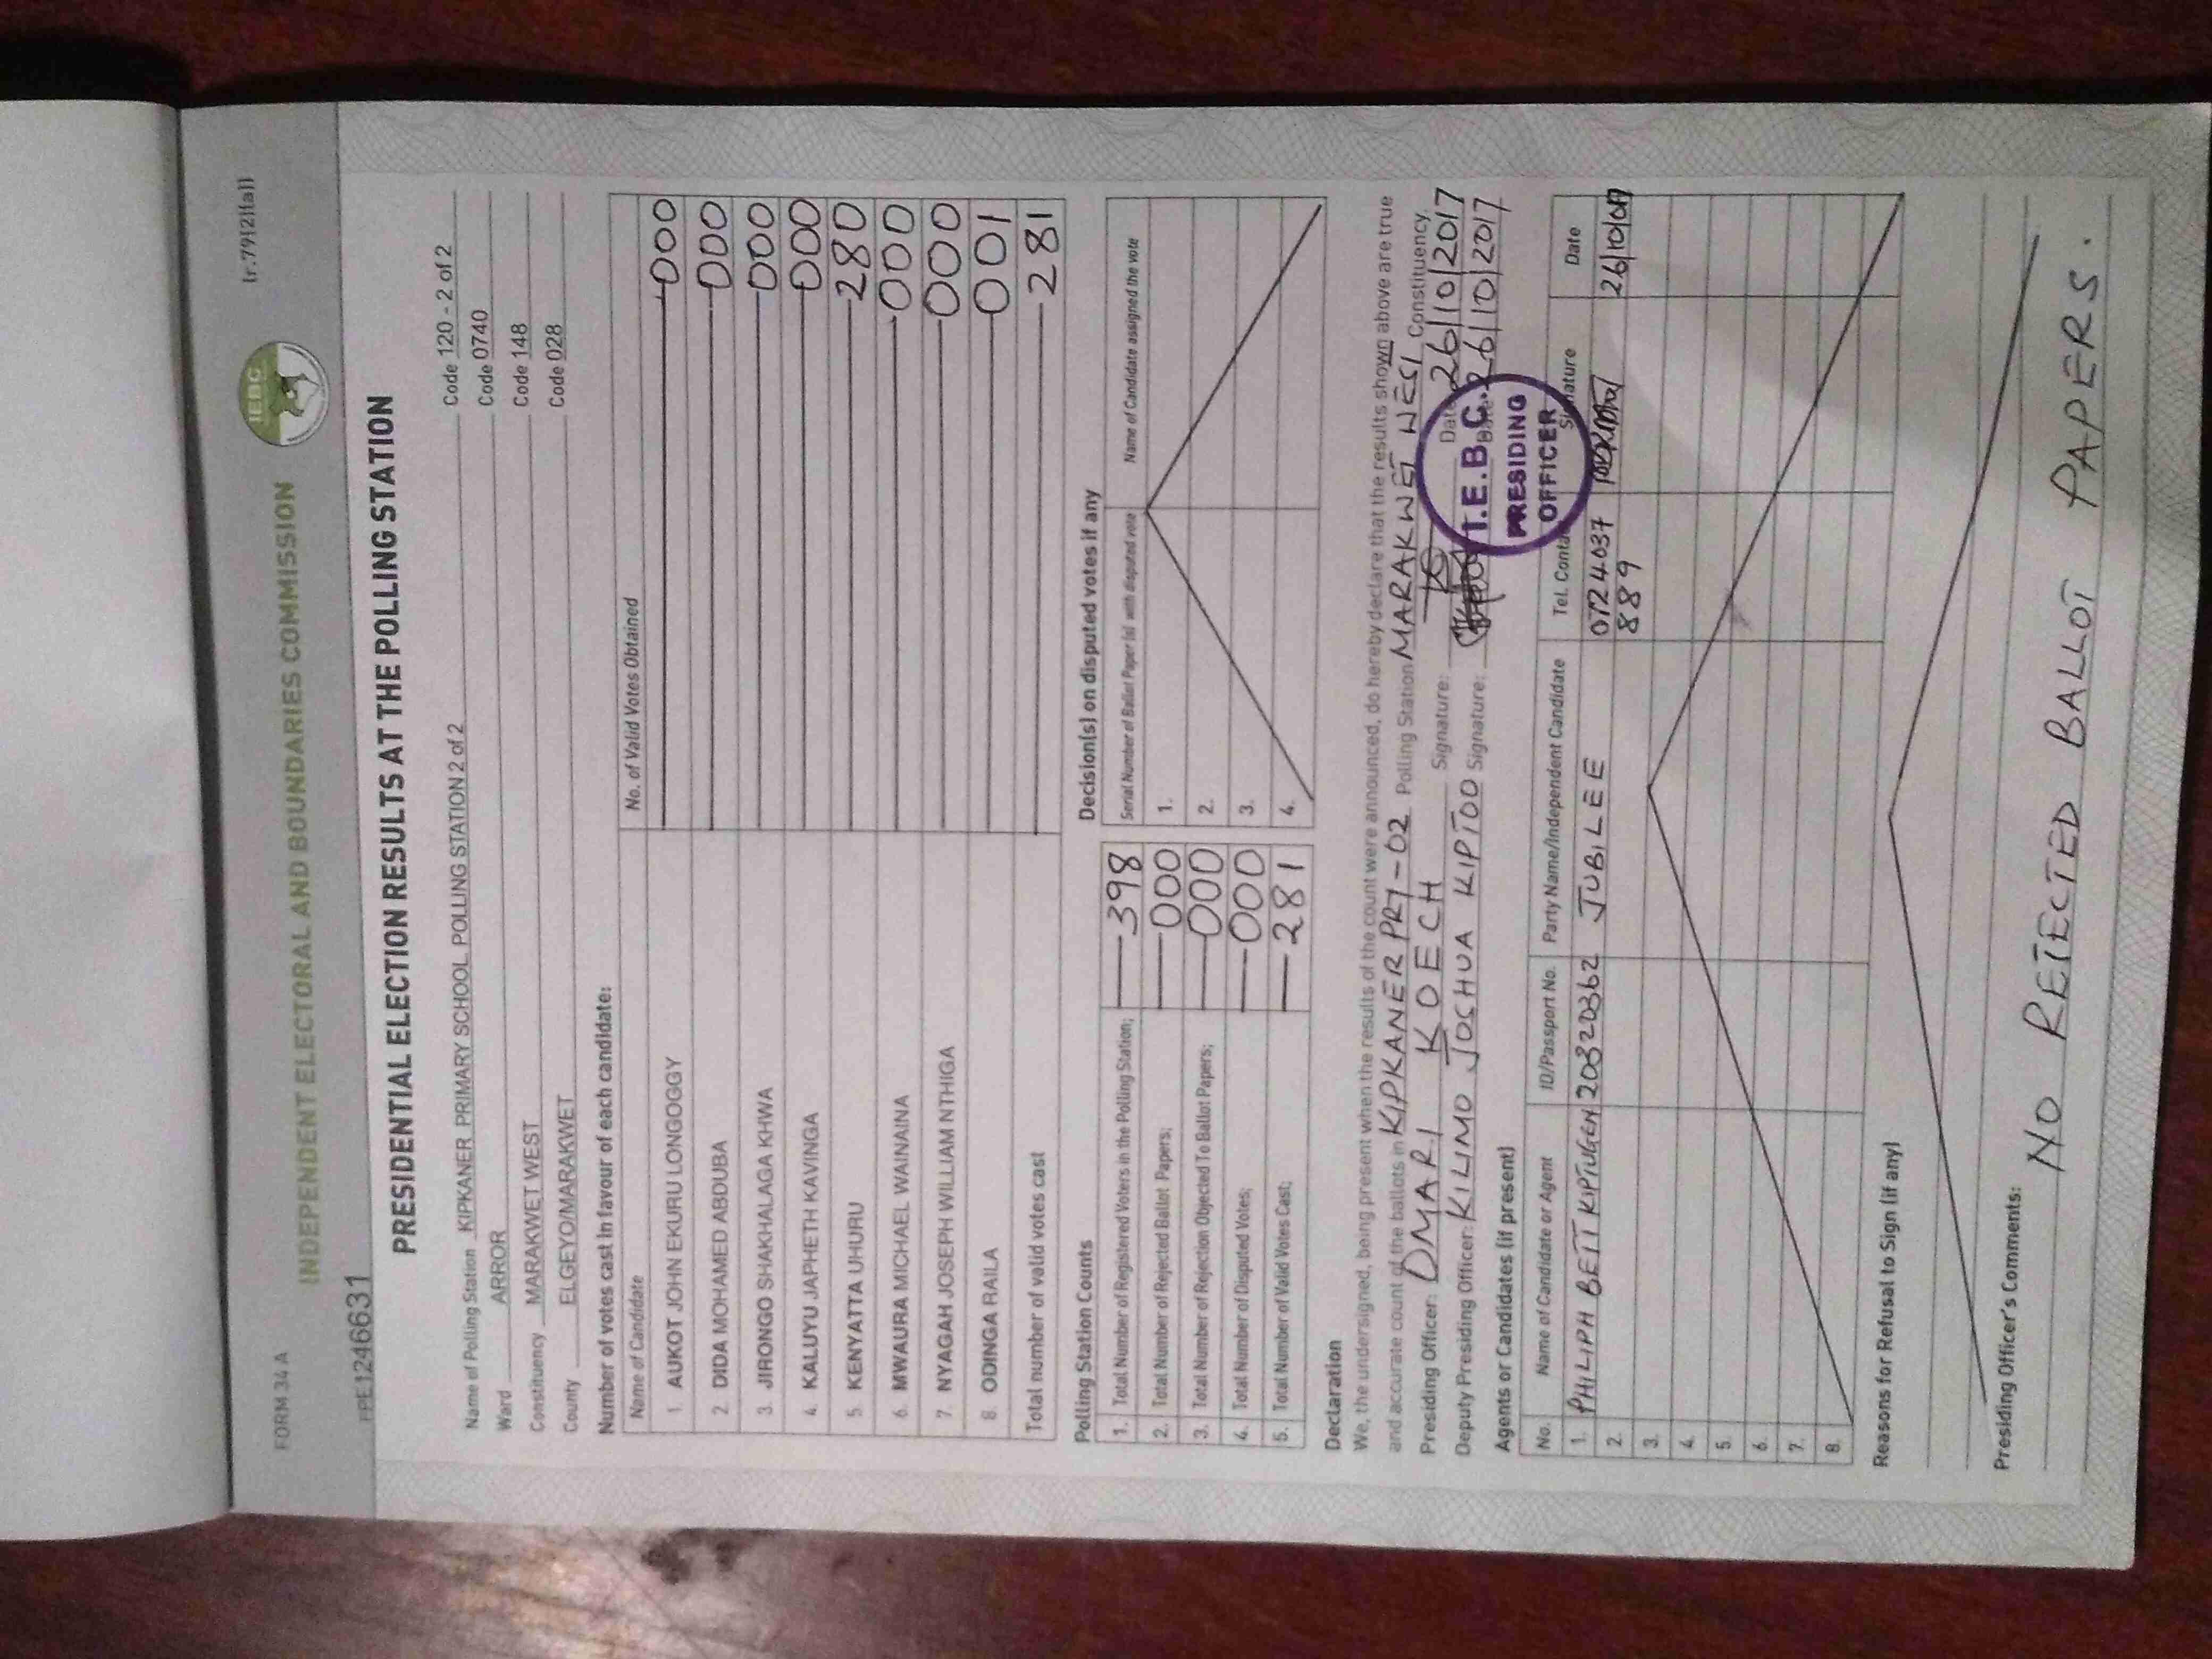 FORM 34 A (r.79(2)(a))
IEBC
INDEPENDENT ELECTORAL AND BOUNDARIES COMMISSION
PPE1246631
PRESIDENTIAL ELECTION RESULTS AT THE POLLING STATION
Name of Polling Station KIPKANER PRIMARY SCHOOL POLLING STATION 2 of 2 Code 120 - 2 of 2
Ward ARROR Code 0740
Constituency MARAKWET WEST Code 148
County ELGEYO/MARAKWET Code 028
Number of votes cast in favour of each candidate:
Name of Candidate No. of Valid Votes Obtained
1. AUKOT JOHN EKURU LONGOGGY 000
2. DIDA MOHAMED ABDUBA 000
3. JIRONGO SHAKHALAGA KHWA 000
4. KALUYU JAPHETH KAVINGA 000
5. KENYATTA UHURU 280
6. MWAURA MICHAEL WAINAINA 000
7. NYAGAH JOSEPH WILLIAM NTHIGA 000
8. ODINGA RAILA 001
Total number of valid votes cast 281
Polling Station Counts
1. Total Number of Registered Voters in the Polling Station; 398
2. Total Number of Rejected Ballot Papers; 000
3. Total Number of Rejection Objected To Ballot Papers; 000
4. Total Number of Disputed Votes; 000
5. Total Number of Valid Votes Cast; 281
Decision(s) on disputed votes if any
Serial Number of Ballot Paper (s) with disputed vote Name of Candidate assigned the vote
1.
2.
3.
4.
Declaration
We, the undersigned, being present when the results of the count were announced, do hereby declare that the results shown above are true
and accurate count of the ballots in KIPKANER PRY-02 Polling Station MARAKWET WEST Constituency
Presiding Officer: OMARI KOECH Signature: Date 26/10/2017
Deputy Presiding Officer: KILIMO JOSHUA KIPTOO Signature: Date 26/10/2017
I.E.B.C.
PRESIDING
OFFICER
Agents or Candidates (if present)
No. Name of Candidate or Agent ID/Passport No. Party Name/Independent Candidate Tel. Contact Signature Date
1. PHILIPH BETT KIPTUGEN 20820362 JUBILEE 0724037 26/10/017
2. 889
3.
4.
5.
6.
7.
8.
Reasons for Refusal to Sign (if any)
Presiding Officer's Comments:
NO REJECTED BALLOT PAPERS.